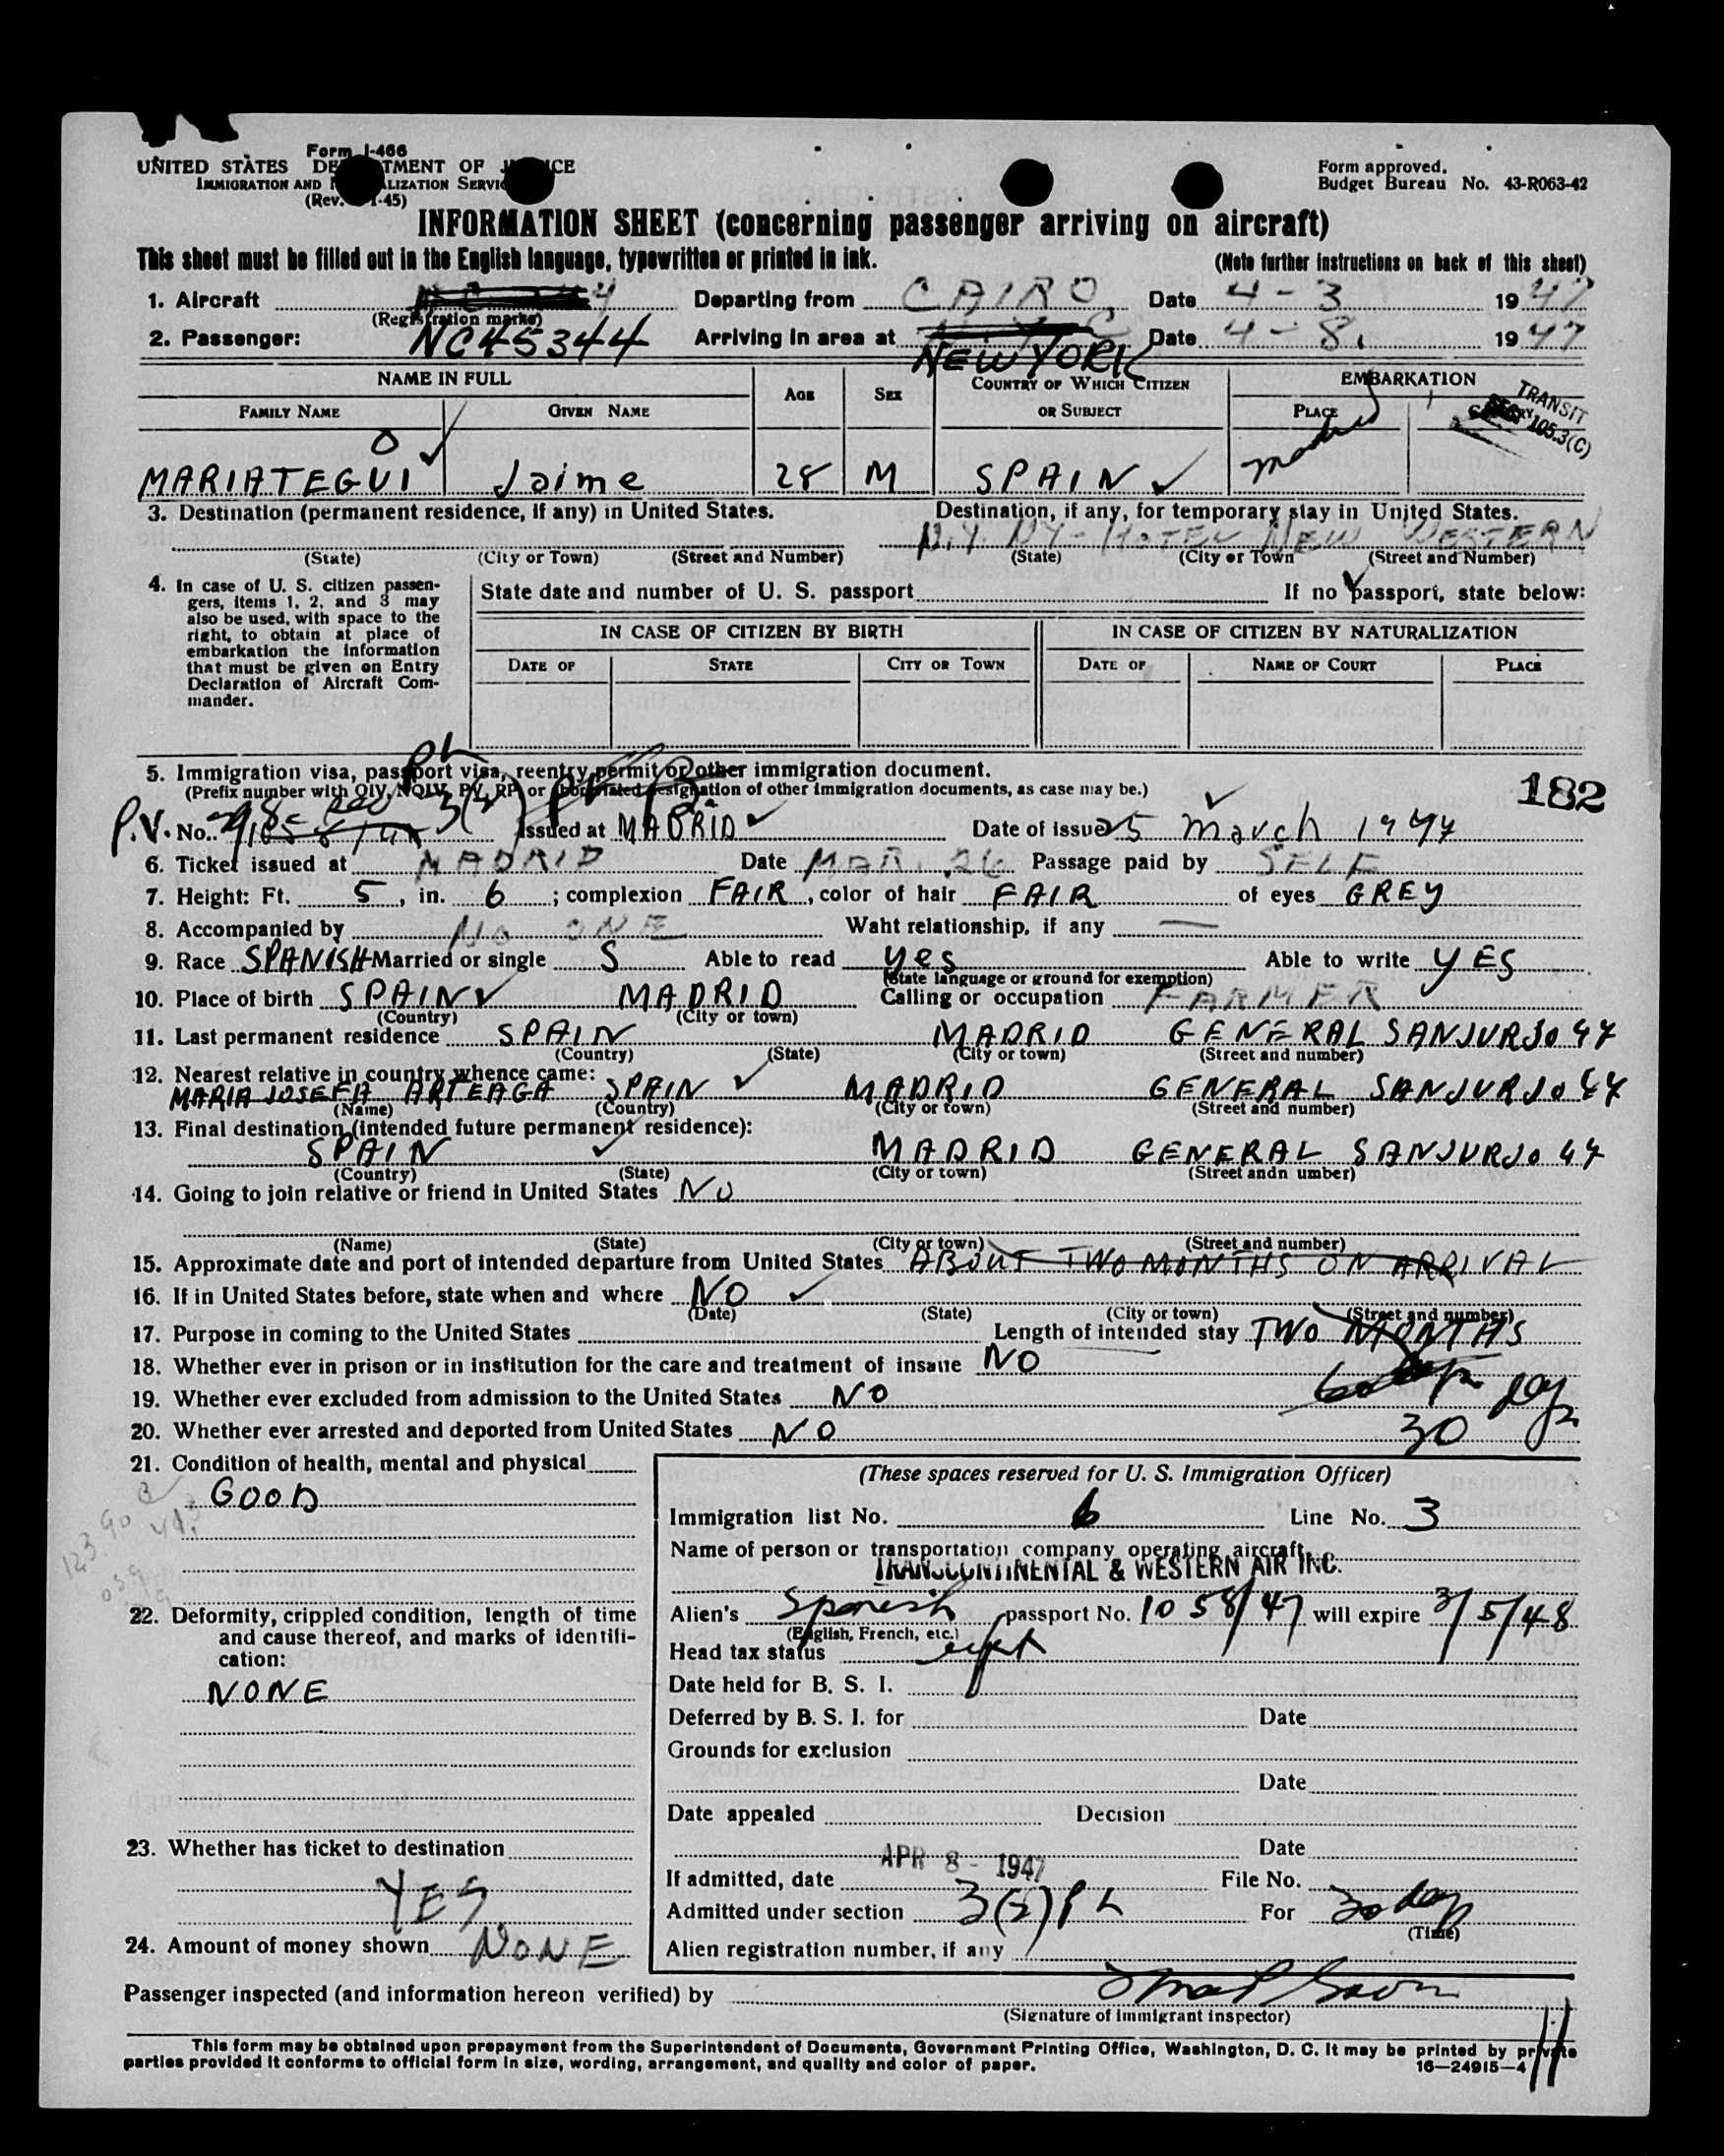 Form I-466
UNITED STATES DE TMENT OF J ICE
IMMIGRATION AND N ALIZATION SERVIC
(Rev. 1-45)
Form approved.
Budget Bureau No. 43-R063-42
INFORMATION SHEET (concerning passenger arriving on aircraft)
This sheet must be filled out in the English language, typewritten or printed in ink. (Note further instructions on back of this sheet)
1. Aircraft Departing from CAIRO Date 4-3 1947
(Registration marks)
2. Passenger: NC45344 Arriving in area at NEW YORK Date 4-8 1947
NAME IN FULL AGE SEX COUNTRY OF WHICH CITIZEN OR SUBJECT EMBARKATION
FAMILY NAME GIVEN NAME PLACE TRANSIT 105.3(C)
MARIATEGUI Jaime 28 M SPAIN Madrid
3. Destination (permanent residence, if any) in United States. Destination, if any, for temporary stay in United States.
N.Y. NY- HOTEL NEW WESTERN
(State) (City or Town) (Street and Number) (State) (City or Town (Street and Number)
4. In case of U. S. citizen passen-
gers, items 1, 2, and 3 may
also be used, with space to the
right, to obtain at place of
embarkation the information
that must be given on Entry
Declaration of Aircraft Com-
mander.
State date and number of U. S. passport If no passport, state below:
IN CASE OF CITIZEN BY BIRTH IN CASE OF CITIZEN BY NATURALIZATION
DATE OF STATE CITY OR TOWN DATE OF NAME OF COURT PLACE
5. Immigration visa, passport visa, reentry permit or other immigration document.
(Prefix number with QIV, NQIV, PV, RP or designation of other immigration documents, as case may be.)
182
P.V. No. Issued at MADRID Date of issue 5 March 1947
6. Ticket issued at MADRID Date MAR. 26 Passage paid by SELF
7. Height: Ft. 5, in. 6; complexion FAIR, color of hair FAIR of eyes GREY
8. Accompanied by NO ONE Waht relationship, if any —
9. Race SPANISH Married or single S Able to read yes Able to write YES
(State language or ground for exemption)
10. Place of birth SPAIN MADRID Calling or occupation FARMER
(Country) (City or town)
11. Last permanent residence SPAIN MADRID GENERAL SANJURJO 47
(Country) (State) (City or town) (Street and number)
12. Nearest relative in country whence came:
MARIA JOSEFA ARTEAGA SPAIN MADRID GENERAL SANJURJO 47
(Name) (Country) (City or town) (Street and number)
13. Final destination (intended future permanent residence):
SPAIN MADRID GENERAL SANJURJO 47
(Country) (State) (City or town) (Street andn umber)
14. Going to join relative or friend in United States NO
(Name) (State) (City or town) (Street and number)
15. Approximate date and port of intended departure from United States ABOUT TWO MONTHS ON ARRIVAL
16. If in United States before, state when and where NO
(Date) (State) (City or town) (Street and number)
17. Purpose in coming to the United States Length of intended stay TWO MONTHS
18. Whether ever in prison or in institution for the care and treatment of insane NO
19. Whether ever excluded from admission to the United States NO
20. Whether ever arrested and deported from United States NO
30
21. Condition of health, mental and physical
GOOD
22. Deformity, crippled condition, length of time
and cause thereof, and marks of identifi-
cation:
NONE
23. Whether has ticket to destination
YES
24. Amount of money shown NONE
(These spaces reserved for U. S. Immigration Officer)
Immigration list No. 6 Line No. 3
Name of person or transportation company operating aircraft
TRANSCONTINENTAL & WESTERN AIR INC.
Alien's Spanish passport No. 1058/47 will expire 3/5/48
(English, French, etc.)
Head tax status
Date held for B. S. I.
Deferred by B. S. I. for Date
Grounds for exclusion
Date
Date appealed Decision
Date
If admitted, date APR 8 - 1947 File No.
Admitted under section 3(2) PL For 30 days
(Time)
Alien registration number, if any
Passenger inspected (and information hereon verified) by
(Signature of immigrant inspector)
This form may be obtained upon prepayment from the Superintendent of Documents, Government Printing Office, Washington, D. C. It may be printed by private
parties provided it conforms to official form in size, wording, arrangement, and quality and color of paper. 16—24915-4